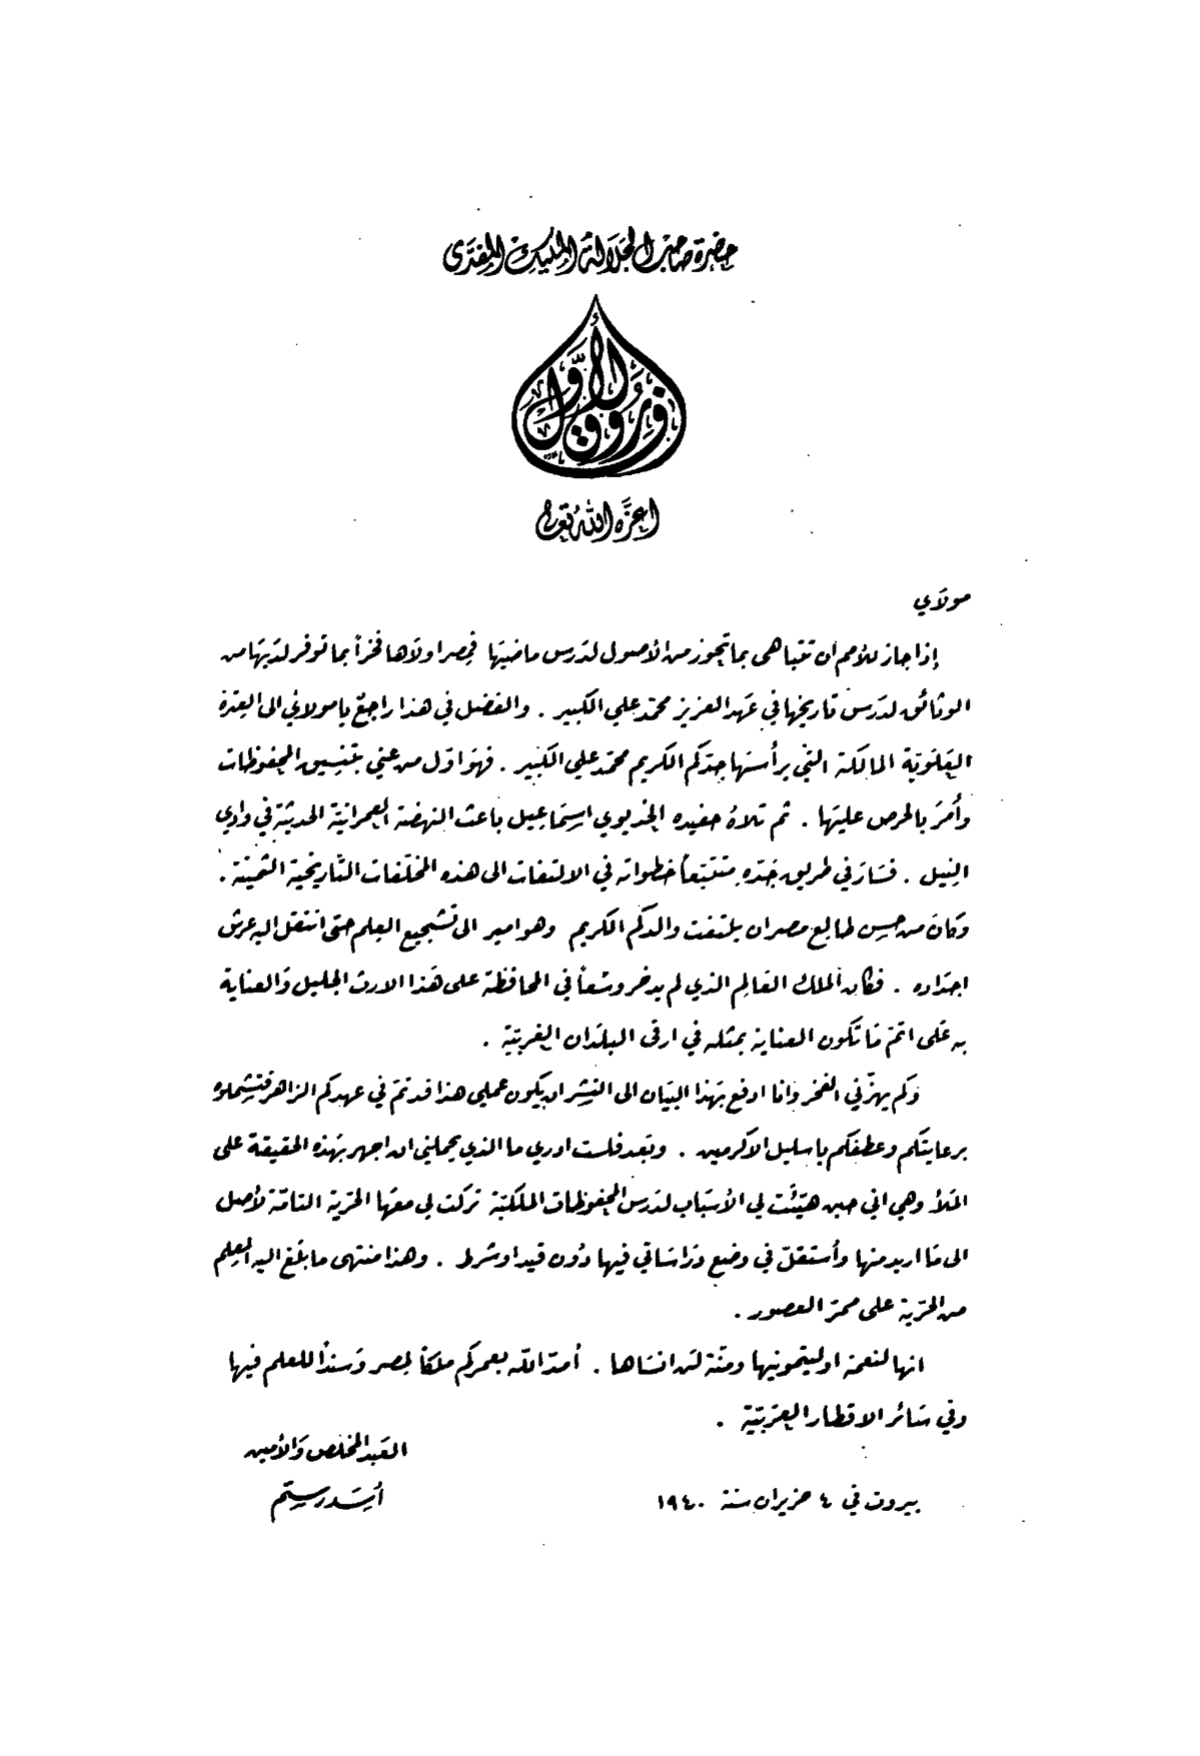 حضرة صاحب الجلالة المليك المفدى
فاروق الأول
اعزّه الله تعالى
مولاي
إذا جاز للأمم ان تتباهى بما تحوز من الأصول لدرس ماضيها فمصر اولاها فخراً بما توفر لديها من
الوثائق لدرس تاريخها في عهد العزيز محمد علي الكبير . والفضل في هذا راجعٌ يا مولاي الى العترة
العلوية المالكة التي يرأسها جدّكم الكريم محمد علي الكبير . فهو اوّل من عني بتنسيق المحفوظات
وأمر بالحرص عليها . ثم تلاهُ حفيده الخديوي اسماعيل باعث النهضة العمرانيّة الحديثة في وادي
النيل . فسار في طريق جدّه متتبعاً خطواته في الالتفات الى هذه المخلّفات التّاريخية الثمينة .
وكان من حسن طالع مصر ان يلتفت والدكم الكريم وهو امير الى تشجيع العلم حتى انتقل اليه عرش
اجداده . فكان الملك العالِم الذي لم يدخر وسعاً في المحافظة على هذا الارث الجليل والعناية
به على اتمّ ما تكون العناية بمثله في ارقى البلدان الغربيّة .
وكم يهزّني الفخر وانا ادفع بهذا البيان الى النشر ان يكون عملي هذا قد تمّ في عهدكم الزاهر فتشملوه
برعايتكم وعطفكم يا سليل الأكرمين . وبعد فلست ادري ما الذي يحملني ان اجهر بهذه الحقيقة على
الملأ وهي اني حين هيّئت لي الأسباب لدرس المحفوظات الملكيّة تركت لي معها الحرّية التامّة لأصل
الى ما اريد منها وأستقلّ في وضع دراساتي فيها دون قيد او شرط . وهذا منتهى ما بلغ اليه العلم
من الحرّية على ممرّ العصور .
انها لنعمة اوليتمونيها ومنّة لن انساها . أمدّ الله بعمركم ملكاً لمصر وسنداً للعلم فيها
وفي سائر الاقطار العربيّة .
العبد المخلص والأمين
أسد رستم
بيروت في ٤ حزيران سنة ١٩٤٠